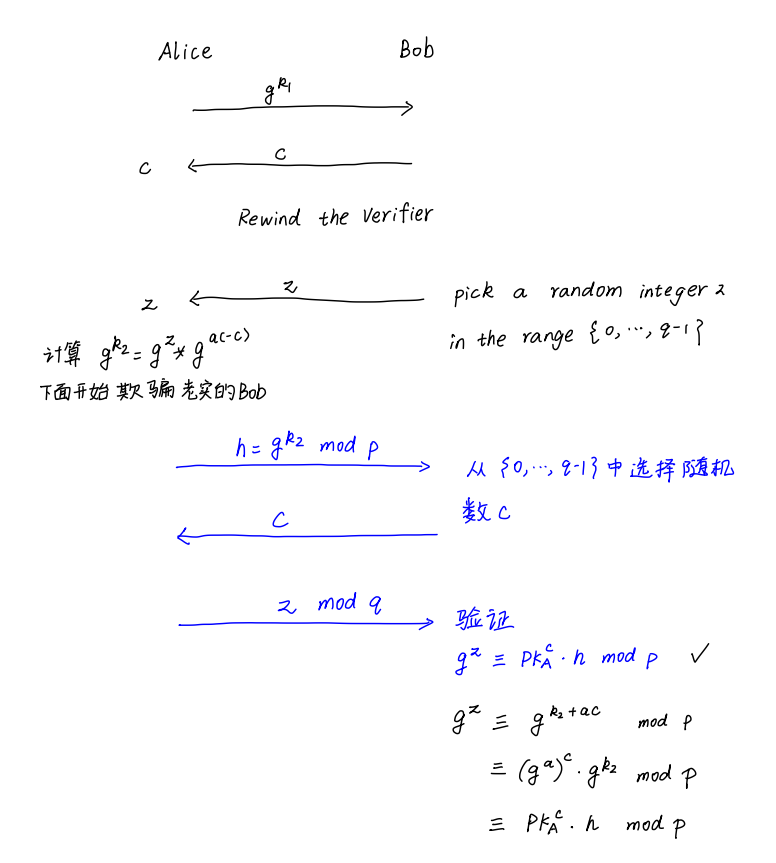 Alice Bob
g^{k_1}
c c
Rewind the Verifier
z z pick a random integer z
in the range {0,⋯,q-1}
计算 g^{k_2} = g^z * g^{a(-c)}
下面开始欺骗老实的Bob
h = g^{k_2} mod p
从 {0,⋯,q-1} 中选择随机
数 c
c
z mod q 验证
g^z ≡ PK_A^c · h mod p ✓
g^z ≡ g^{k_2+ac} mod p
≡ (g^a)^c · g^{k_2} mod p
≡ PK_A^c · h mod p